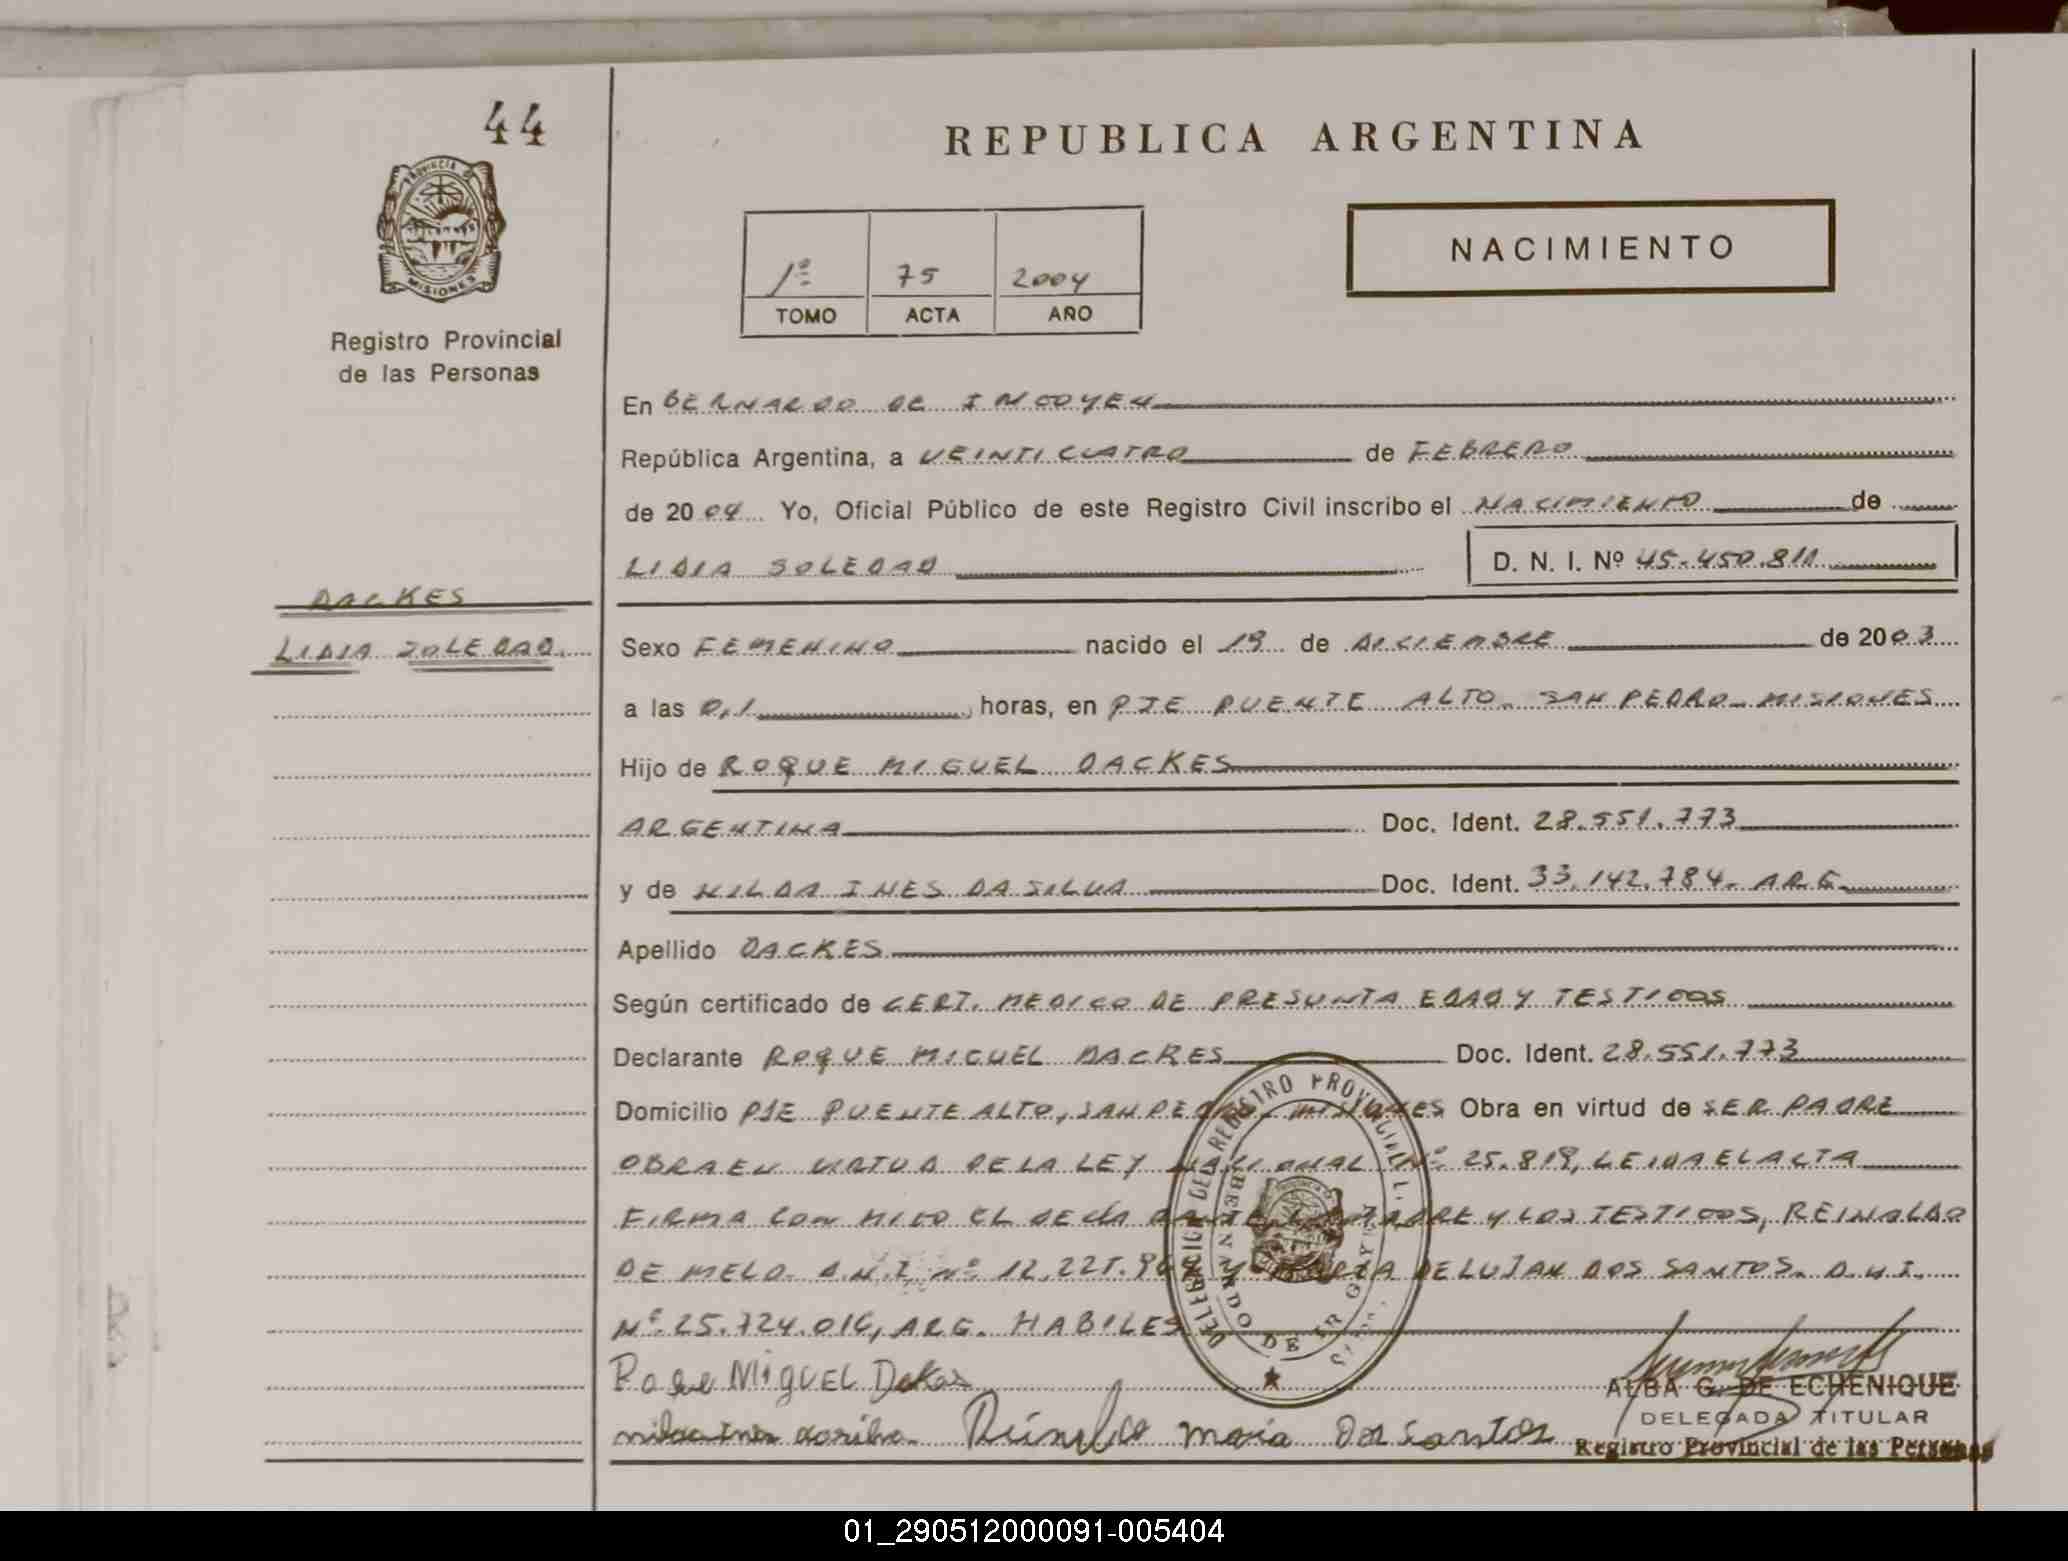 44
PROVINCIA DE
MISIONES
Registro Provincial
de las Personas
REPUBLICA ARGENTINA
NACIMIENTO
1º 75 2004
TOMO ACTA AÑO
En BERNARDO DE IRIGOYEN
República Argentina, a VEINTICUATRO de FEBRERO
de 2004 Yo, Oficial Público de este Registro Civil inscribo el NACIMIENTO de
LIDIA SOLEDAD D. N. I. Nº 45.450.811
DACKES
LIDIA SOLEDAD.
Sexo FEMENINO nacido el 19 de DICIEMBRE de 2003
a las 0,1 horas, en PJE PUENTE ALTO. SAN PEDRO - MISIONES
Hijo de ROQUE MIGUEL DACKES
ARGENTINA Doc. Ident. 28.551.773
y de NILDA INES DA SILVA Doc. Ident. 33.142.784. ARG.
Apellido DACKES
Según certificado de CERT. MEDICO DE PRESUNTA EDAD Y TESTIGOS
Declarante ROQUE MIGUEL DACKES Doc. Ident. 28.551.773
Domicilio PJE PUENTE ALTO, SAN PEDRO - MISIONES Obra en virtud de SER PADRE
OBRA EN VIRTUD DE LA LEY NACIONAL Nº 25.819, LEIDA EL ACTA
FIRMA CON MIGO EL DECLARANTE, LA MADRE Y LOS TESTIGOS, REINALDO
DE MELO. D.N.I. Nº 12.225. Y MARIA DE LUJAN DOS SANTOS. D.N.I.
Nº 25.724.016, ARG. HABILES
DELEGACION DEL REGISTRO PROVINCIAL
BERNARDO DE IRIGOYEN
MIGUEL
Maria Dos Santos
ALBA G. DE ECHENIQUE
DELEGADA TITULAR
Registro Provincial de las Personas
01_290512000091-005404